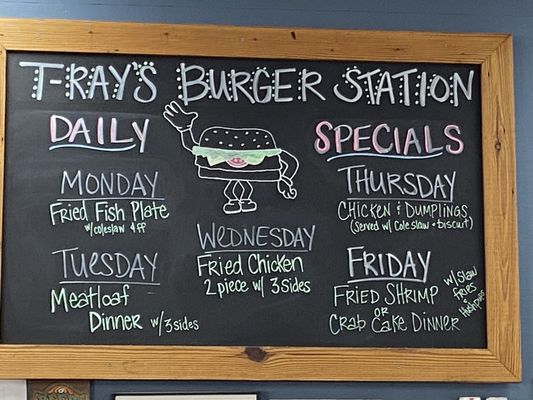 T-RAY'S BURGER STATION
DAILY SPECIALS
MONDAY
FRIED FISH PLATE
w/ coleslaw & ff
TUESDAY
MEATLOAF
DINNER w/ 3 sides
WEDNESDAY
FRIED CHICKEN
2 PIECE w/ 3 sides
THURSDAY
CHICKEN & DUMPLINGS
(Served w/ Coleslaw & biscuit)
FRIDAY
FRIED SHRIMP
OR
CRAB CAKE DINNER
w/ slaw
fries